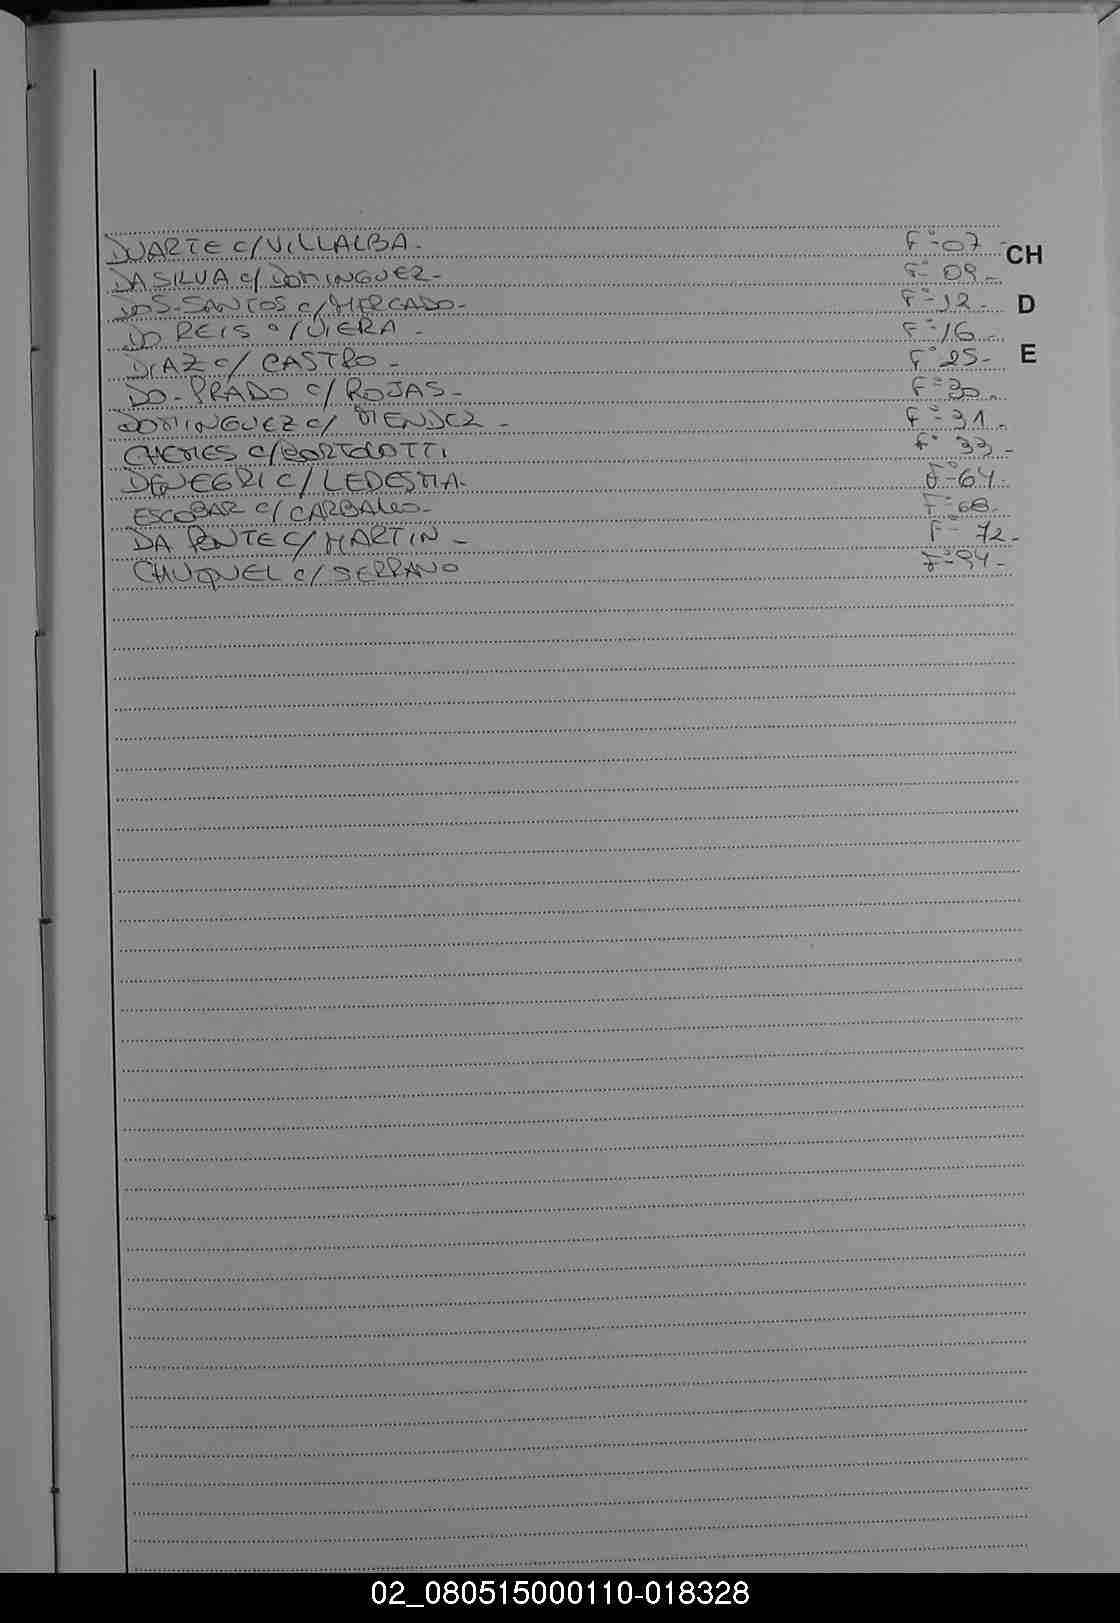 DUARTE c/VILLALBA. Fº-07
CH
DA SILVA c/DOMINGUEZ- Fº 09-
DOS-SANTOS c/MERCADO- Fº-12- D
DO REIS c/VIERA - Fº-16
DIAZ c/ CASTRO - Fº 25- E
DO-PRADO c/ROJAS- Fº=30
DOMINGUEZ c/ MENDEZ - Fº=31.
CHEMES c/BORTOLOTTI Fº 33-
DENEGRI c/LEDESMA. Fº-64-
ESCOBAR c/CARBALLO- Fº 68-
DA PONTE c/MARTIN - Fº 72-
CHUQUEL c/SERRANO Fº=94-
02_080515000110-018328